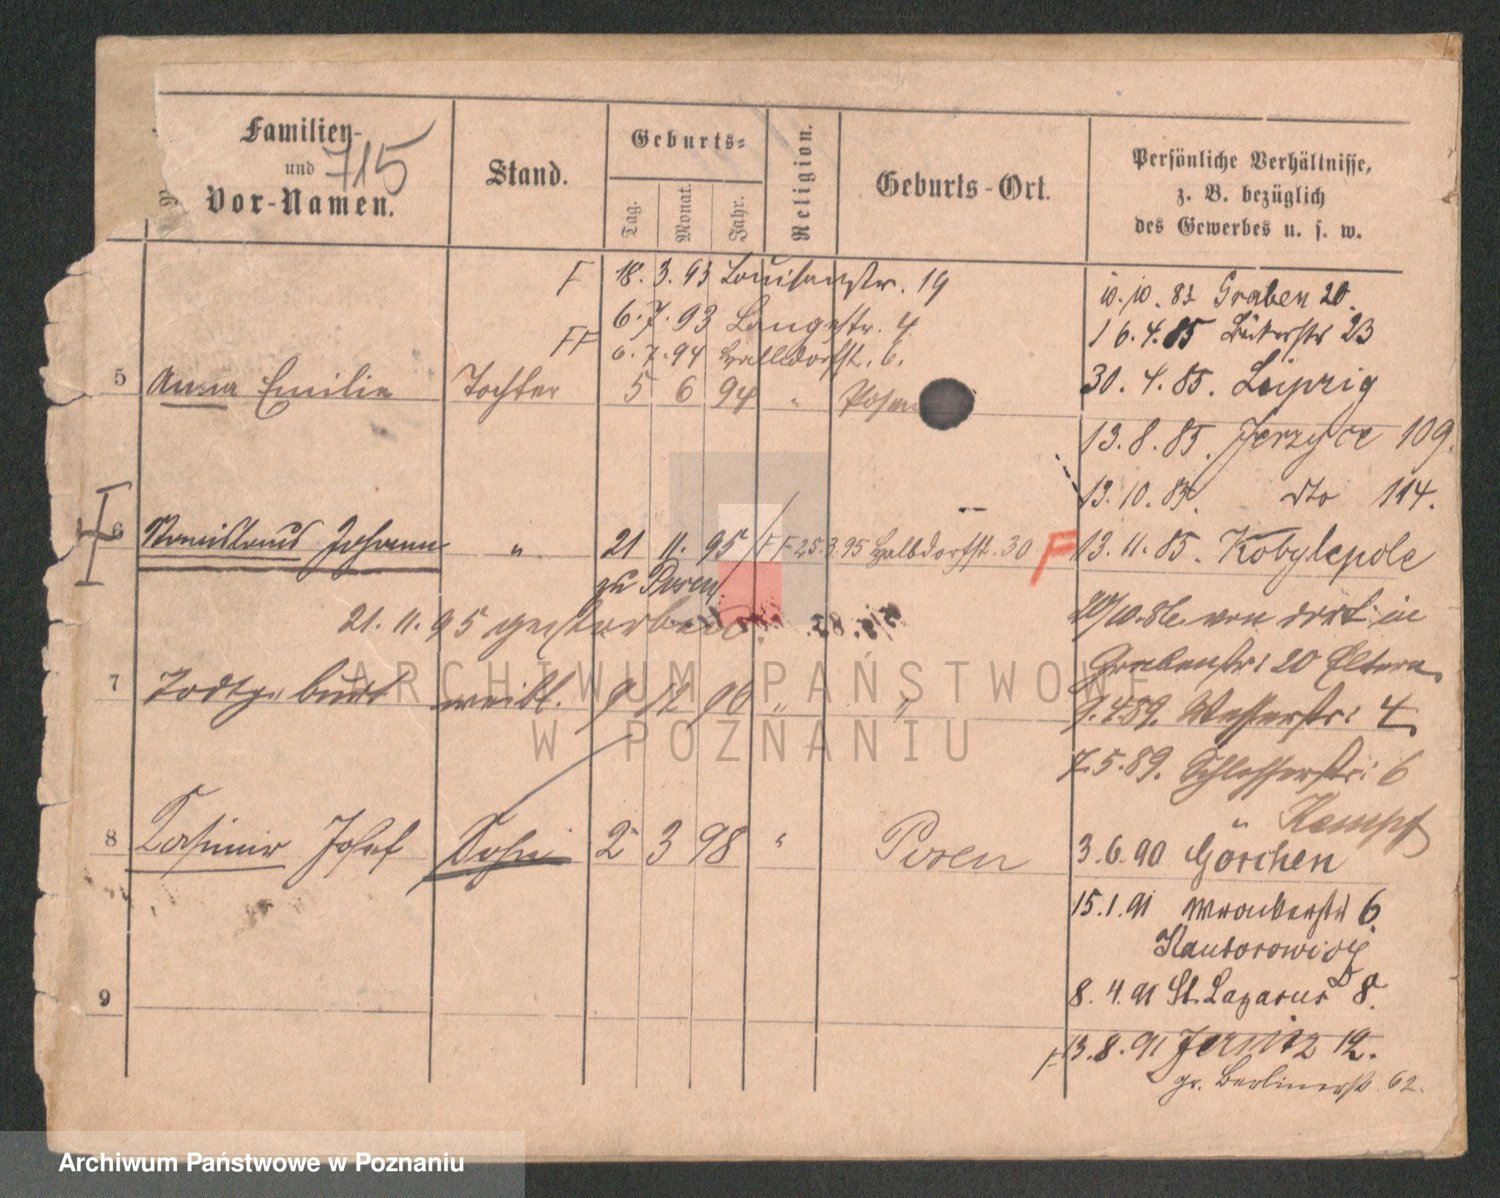 Familien-
und 715
Vor-Namen.
Stand.
Geburts-
Tag. Monat. Jahr.
Religion.
Geburts-Ort.
Persönliche Verhältnisse,
z. B. bezüglich
des Gewerbes u. s. w.
F 18. 3. 93 Louisenstr. 19
6. 7. 93 Langestr. 4
FF 6. 7. 94 Halbdorfst. 6.
5 Anna Emilie Tochter 5 6 94 " Posen
6 Stanislaus Johann " 21 11. 95 FF 25. 3. 95 Halbdorfst. 30 F
zu Posen
21. 11. 95 gestorben
7 Todtgeburt weibl. 9 12 96 " "
8 Casimir Josef Sohn 2 3 98 " Posen
9
10. 10. 83 Graben 20.
16. 4. 85 23
30. 4. 85. Leipzig
13. 8. 85. Jerzyce 109.
13. 10. 85. dto 114.
13. 11. 85. Kobylepole
20/10.86. von dort in
Grabenstr: 20 Eltern
9. 4 89. Wasserstr: 4
7. 5. 89. Schlosserstr: 6
" Kempf
3. 6. 90 Görchen
15. 1. 91 Wronkerstr 6.
Kantorowicz
8. 4. 91 St. Lazarus 8.
F 13. 8. 91 Jersitz 12.
gr. Berlinerst. 62.
ARCHIWUM PAŃSTWOWE
W POZNANIU
Archiwum Państwowe w Poznaniu